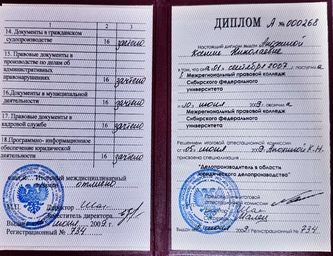 14. Документы в гражданском судопроизводстве 16 зачтено
15. Правовые документы в производстве по делам об административных правонарушениях 16 зачтено
16. Документы в муниципальной деятельности 16 зачтено
17. Правовые документы в кадровой службе 16 зачтено
18. Программно - информационное обеспечение юридической деятельности 16 зачтено
Итоговый междисциплинарный
отлично
М.П. Директор
Заместитель директора
июня 2009 г.
Регистрационный № 734
ДИПЛОМ А № 000268
Настоящий диплом выдан
Ксении Николаевне
в том, что она 01 сентября 2007 г. поступила
в Межрегиональный правовой колледж
Сибирского федерального
университета
и 10 июня 2009 г. окончила
Межрегиональный правовой колледж
Сибирского федерального
университета
Решением итоговой аттестационной комиссии
от 05 июня 2009 г.
присвоена специализация
"Делопроизводитель в области
юридического делопроизводства"
Регистрационный № 734